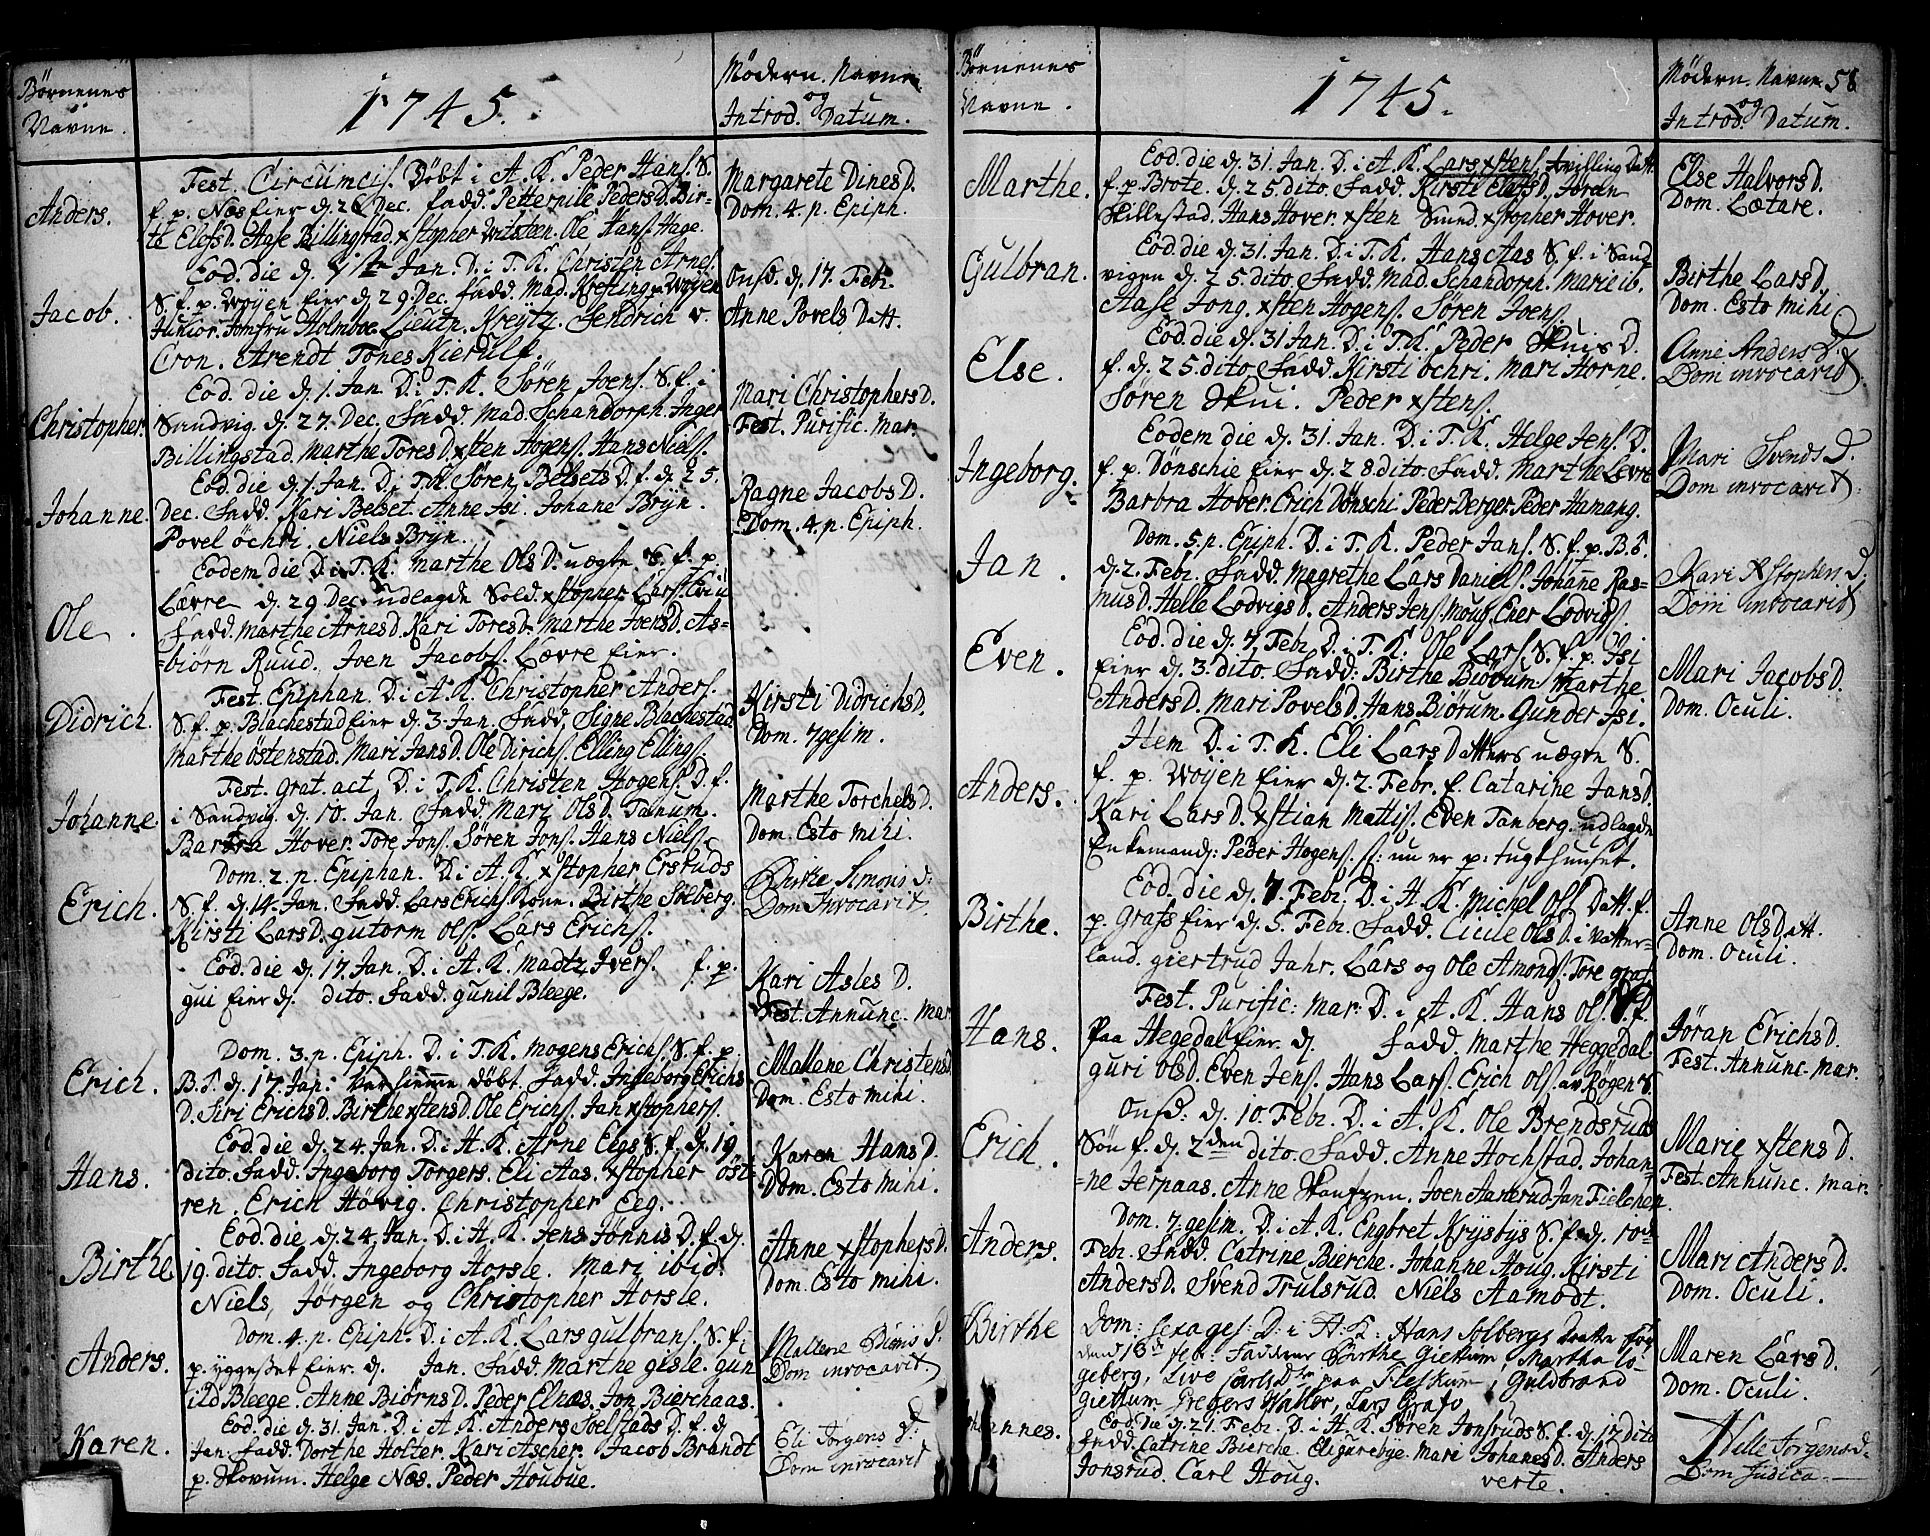 Børnenes
Navne.
1745.
Mødern. Navne
og
Introd. Datum.
Anders.
Fest. Circumcis. Døbt i A. K. Peder Hans. S.
f. p. Næs eier d. 26 Dec. fadd. Petternile Peders D. Bir-
te Elefs D. Aase Billingstad. xstopher Ole Hans. Hage.
Margarete Dines D.
Dom. 4. p. Epiph.
Jacob.
Eod. die d. 1 Jan. D. i T. K. Christen Arnes.
S. f. p. Wøyen eier d. 29 Dec. fadd. Mad. Krefting p. Wøyen
Junior. Jomfru Holmboe Lieutn. Kreytz. Hendrich v.
Cron. Arendt. Tønes Kierulf.
Onsd. d. 17. Febr.
Anne Povels Datt.
Christopher.
Eod. die d. 1. Jan. D. i T. K. Søren Joens. S. f. i
Sandvig. d. 27. Dec. Fadd. Mad. Schandorph. Inger
Billingstad. Marthe Tores D. xsten Hogens. Hans Niels.
Mari Christophers D.
Fest. Purific. Mar.
Johanne.
Eod. die d. 1. Jan. D. i T. K. Søren Belsets D. f. d. 25.
Dec. Fadd. Kari Belset. Anne Isi. Johane Bryn.
Povel Øchri. Niels Bryn.
Ragne Jacobs D.
Dom. 4. p. Epiph.
Ole.
Eodem die D. i T. K. Marthe Ols D. uægte S. f. p.
Lævre d. 29 Dec. udlagde Sold. xstopher Lars.
Fadd. Marthe Arnes D. Kari Tores D. Marthe Joens D. As-
=biørn Ruud. Joen Jacobs. Lævre eier.
Didrich.
Fest. Epiphan. D. i A. K. Christopher Anders.
S. f. p. Blachestad eier d. 3. Jan. Fadd. Signe Blachestad
Marthe Østenstad. Mari Jans D. Ole Dirichs. Elling Ellings.
Kirsti Didrichs D.
Dom. 7gesim.
Johanne
Fest. Grat. act. D. i T. K. Christen Hogens D. f.
i Sandvig. d. 10. Jan. Fadd. Mari Ols D. Tanum.
Barbra Hover. Tore Jons. Søren Jons. Hans Niels.
Marthe Torchels D.
Dom. Esto mihi.
Erich.
Dom. 2. p. Epiphan. D. i A. K. xstopher Ersruds
S. f. d. 14. Jan. Fadd. Lars Erichs. Kone. Birthe Solberg.
Kirsti Lars D. Gutorm Ols. Lars Erichs.
Birke Simons D.
Dom Invocavit.
Eod. die d. 17. Jan. D. i A. K. Madtz Ivers. f. p.
Gui eier d. dito. Fadd. Gunil Bleege.
Kari Asles D.
Fest. Annunc. Mar.
Erich.
Dom. 3. p. Epiph. D. i T. K. Mogens Erichs. S. f. p.
B. T. d. 17 Jan. Var hiemme døbt. Fadd. Ingeborg Erichs
D. Siri Erichs D. Birthe xstens D. Ole Erichs. Jan xstophers.
Mallene Christens D
Dom. Esto mihi.
Hans.
Eod. die d. 24. Jan. D. i H. K. Arne Eegs S. f. d. 19
dito. Fadd. Ingeborg Torgers. Eli Aas. xstopher Øst-
ren. Erich Høvig. Christopher Eeg.
Karen Hans D.
Dom. Esto mihi.
Birthe
Eod. die d. 24. Jan. D. i H. K. Jens Jønnis D. f. d.
19. dito. Fadd. Ingeborg Horsle. Mari ibid.
Niels, Jørgen og Christopher Horsle.
Anne xstophers D.
Dom. Esto mihi.
Anders.
Dom. 4. p. Epiph. D. i A. K. Lars Gulbrans. S. f.
p. Yggeset eier. d. Jan. Fadd. Marthe Gisle. Gun
ild Bleege. Anne Biørns D. Peder Elnæs. Jon Bierchaas.
Mallene
Dom invocavit
Karen.
Eod. die d. 31. Jan. D. i A. K. Anders Soelstads D. f. d.
Jan. Fadd. Dorthe Holter. Kari Ascher. Jacob Brandt
p. Skovum. Helge Næs. Peder Houbue.
Eli Jørgens D.
Dom invocavit
Børnenes
Navne.
1745.
Mødern. Navne 58
og
Introd. Datum.
Marthe.
Eod. die d. 31. Jan. D. i A. K. Lars xstens. tvilling Datt.
f. p. Brote. d. 25 dito. Fadd. Kirsti Elefs D. Jøran
Skillestad. Hans Hover. xsten Smed. xstopher Hover.
Else Halvors D.
Dom. Lætare.
Gulbran.
Eod. die d. 31. Jan. D. i T. K. Hans Aas S. f. i Sand
vigen d. 25. dito. Fadd. Mad. Schandorph. Marie ib.
Aase Jong. xsten Hogens. Søren Joens.
Birthe Lars D.
Dom. Esto mihi
Else.
Eod. die d. 31 Jan. D. i T. K. Peder Skuis D.
f. d. 25. dito. Fadd. Kirsti Øchri. Mari Horne.
Søren Skui. Peder xstens.
Anne Anders D.
Dom invocavit.
Ingeborg.
Eodem die d. 31. Jan. D. i T. K. Helge Jens. D.
f. p. Dønschie eier d. 28. dito. Fadd. Marthe Levre
Barbra Hover. Erich Dønschi Peder Berger. Peder Hamang.
Mari Svends D.
Dom invocavit.
Jan.
Dom. 5. p. Epiph. D. i T. K. Peder Jans. S. f. p. B. T.
d. 2. Febr. Fadd. Magrethe Lars Daniels. Johanne Ras-
mus D. Helle Lodvigs D. Anders Jens. Moug. Ener Lodvigs.
Kari Xstophers D.
Dom invocavit
Even.
Eod. die d. 7. Febr. D. i T. K. Ole Lars. S. f. p. Isi
eier d. 3. dito. Fadd: Birthe Biørum Marthe
Anders D. Mari Povels D. Hans Biørum. Gunder Isi.
Mari Jacobs D.
Dom. Oculi.
Anders.
Item D. i T. K. Eli Lars Datters uægte S.
f. p. Wøyen eier d. 2. Febr. f. Catarine Jans D.
Kari Lars D. xstian Mattis. Even Tanberg. udlagde
Enkemand: Peder Hogens. s: nu er p: tugthuuset.
Birthe.
Eod. die d. 7. Febr. D. i H. K. Michel Ols. Datt. f.
p. Grafs eier d. 5. Febr. Fadd. Cicile Ols D. i Vatter-
land. Giertrud Jahr. Lars og Ole Amonds. Tore Graf
Anne Ols Datt.
Dom. Oculi.
Hans.
Fest. Purific: Mar: D. i A. K. Hans Ols. S. f.
paa Hegedal eier. d. Fadd. Marthe Heggedal
Guri Ols D. Even Jens. Hans Lars. Erich Ols. av Røgen S.
Jøran Erichs D.
Fest. Annunc. Mar.
Erich.
Onsd: d. 10 Febr. D. i A. K. Ole Brendsruds
Søn f. d. 2den dito. Fadd. Anne Hochstad. Johan-
=ne Jerpaas. Anne Skautzen. Joen Aarerud Jan Fielchen
Marie xstens D.
Fest. Annunc. Mar.
Anders.
Dom. 7gesim. D. i A. K. Engbret Krysbys S. f. d. 10de
Febr. Fadd. Catrine Bierche. Johanne Houg. Kirsti
Anders D. Svend Trulsrud. Niels Aamodt.
Mari Anders D.
Dom. Oculi.
Birthe
Dom: Sexages: D: i H. K: Hans Solbergs Datter
dend 13de Febr: Fadderne Birthe Giettum, Martha
geberg, Live Carls D paa Fleskum, Guldbrand
Giettum Gregers Walter, Lars Grafs
Maren Lars D.
Dom. Oculi.
annes.
Eod. die d. 21. Febr. D. i H. K. Søren Jonsruds S. f. d. 17 dito
Fadd. Catrine Bierche. Eli Gurebye. Mari Johanes D. Anders
Jonsrud. Carl Houg.
verte.
Helle Jørgens D.
Dom Judica